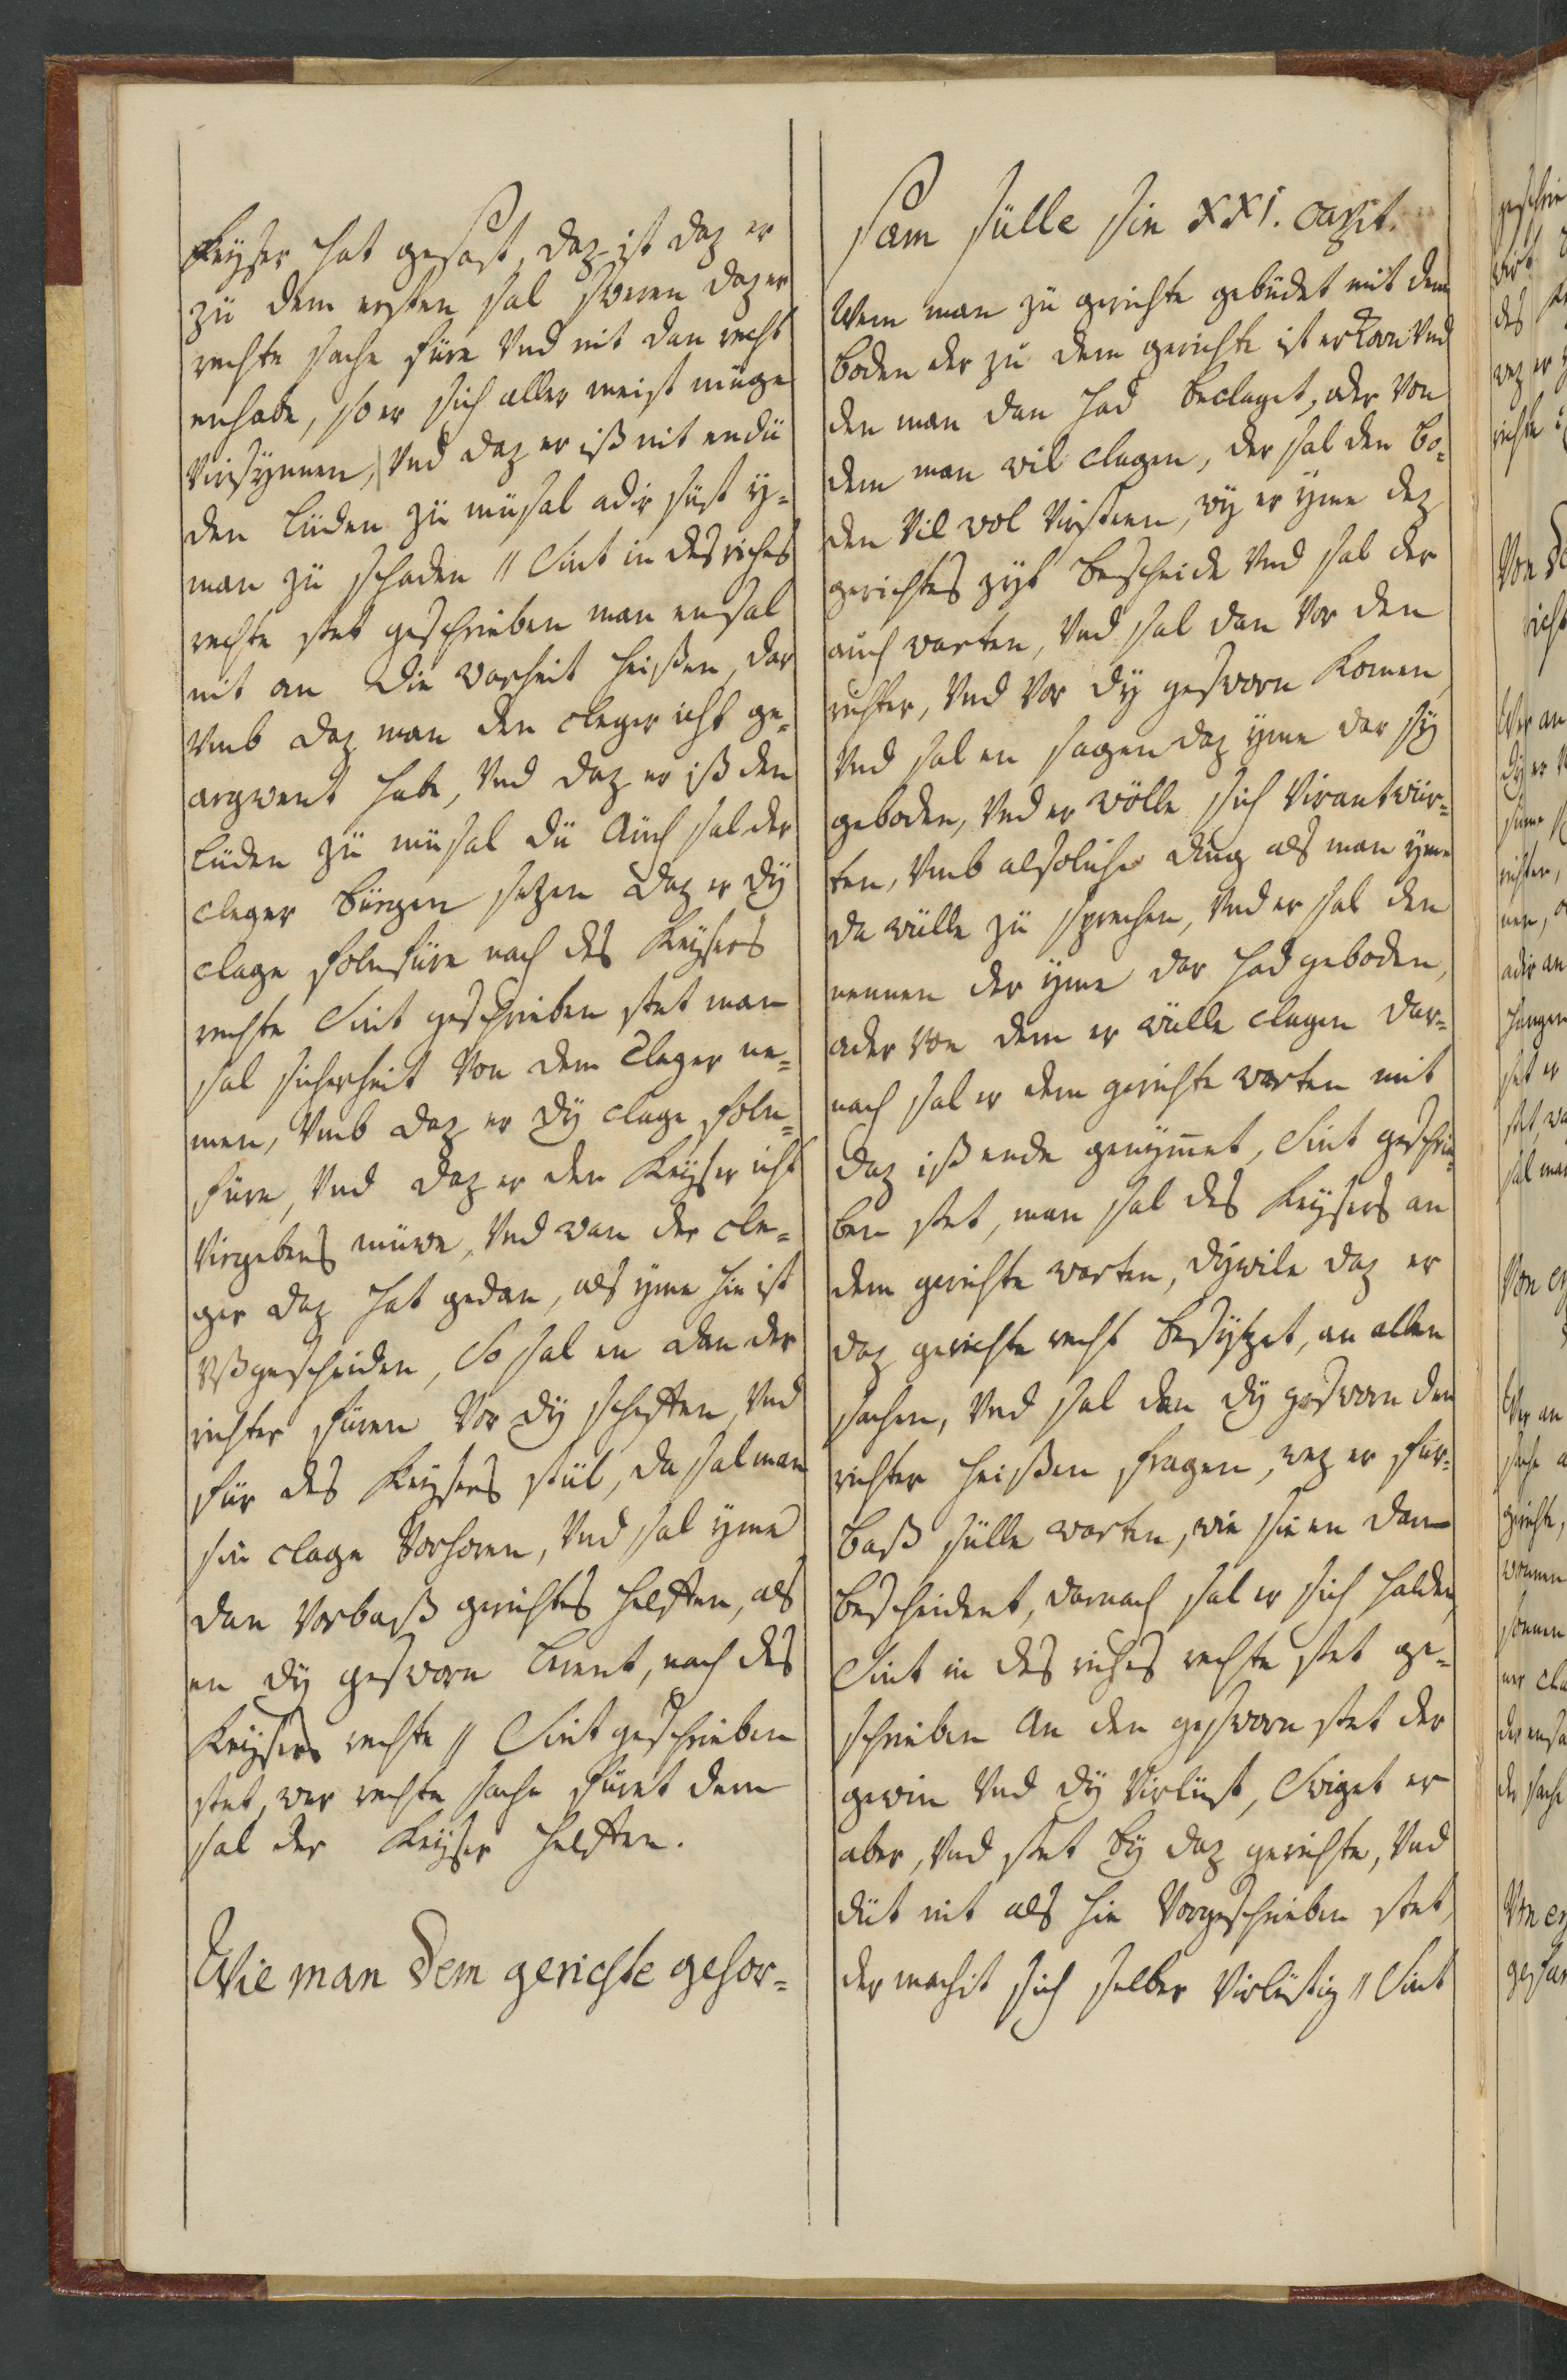 Keyser hat gesast, daz ist daz er
zü dem ersten sal sweren daz er
rechte sache füre Vnd nit dan recht
enhabe, so er sich aller meist müge
Virsÿnnen, Vnd daz er iß nit endü
den lüden zü müsal adir süst ÿ-
man zü schaden // Sint in des riches
rechte stet geschrieben man ensal
nit an die warheit heißen, dar
Vmb daz man den cleger icht ge-
argwent habe, Vnd daz er iß den
lüden zü müsal dü Auch sal der
cleger bürgen setzen daz er dÿ
clage folnfüre nach des Keysers
rechte Sint geschrieben stet man
sal sicherheit Von dem Cleger ne-
men, Vmb daz er dÿ clage foln-
füre, Vnd daz er den Keyser icht
Virgebens müwe, Vnd wan der cle-
ger daz hat gedan, als ÿme hie ist
Vßgescheiden, So sal en dan der
richter füren Vor dÿ scheffen, Vnd
für des Keysers stül, da sal man
sin clage Vorhoren, Vnd sal ÿme
dan Vorbaß gerichtes helffen, als
en dÿ gesworn lerent, nach des
Keysers rechte // Sint geschrieben
stet, wer rechte sache füret dem
sal der Keyser helffen.
Wie man dem gerichte gehor-
sam sülle sin XXI. capit.
Wem man zü gerichte gebüdet mit dem
boden der zü dem gerichte ist erkorn Vnd
den man dan had beclaget, oder Von
dem man wil clagen, der sal den bo-
den Vil wol Virsteen, wÿ er ÿme dez
gerichtes zyt bescheide Vnd sal der
auch warten, Vnd sal dan Vor den
richter, Vnd Vor dÿ gesworn komen
Vnd sal en sagen daz ÿme dar sÿ
geboden, Vnd er wölle sich Virantwür-
ten, Vmb alsoliche ding als man ÿme
da wülle zü sprechen, Vnd er sal den
nennen der ÿme dar had geboden,
oder von dem er wülle clagen dar-
nach sal er dem gerichte warten mit
daz iß ende genÿmet, Sint geschrie-
ben stet, man sal des Keysers an
dem gerichte warten, dÿwile daz er
daz gerichte recht besÿtzet, an allen
sachen, Vnd sal dan dÿ gesworn den
richter heißen fragen, wez er für-
baß sülle warten, wie sie en dan
bescheident, darnach sal er sich halden,
Sint in des riches rechte stet ge-
schrieben An den gesworn stet der
gewin Vnd dÿ Virlüst, Swiget er
aber, Vnd stet bÿ daz gerichte, Vnd
düt nit als hie Vorgeschrieben stet,
der machit sich selber Virlüstig // Sint